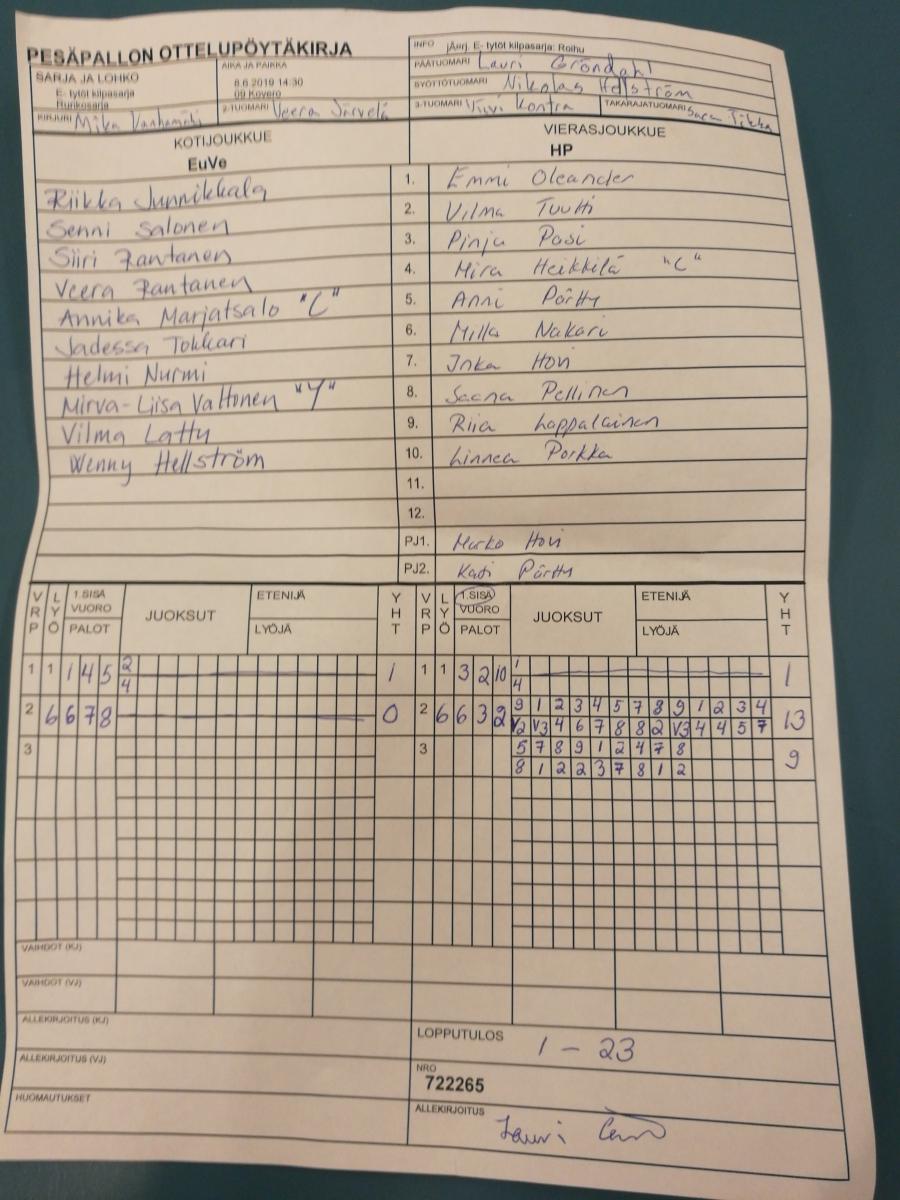 PESÄPALLON OTTELUPÖYTÄKIRJA
INFO jÄurj. E- tytöt kilpasarja: Roihu
PÄÄTUOMARI Lauri Gröndahl
SYÖTTÖTUOMARI Nikolas Hellström
3-TUOMARI Kontra TAKARAJATUOMARI Tikka
SARJA JA LOHKO
E- tytöt kilpasarja
Runkosarja
AIKA JA PAIKKA
8.6.2019 14:30
09 Kovero
KIRJURI Mika Vanhamäki 2-TUOMARI Veera Järvelä
KOTIJOUKKUE
EuVe
VIERASJOUKKUE
HP
Riikka Junnikkala 1. Emmi Oleander
Senni Salonen 2. Vilma Tuutti
Siiri Rantanen 3. Pinja Pasi
Veera Rantanen 4. Mira Heikkilä "C"
Annika Marjatsalo "C" 5. Anni Pörtty
Jadessa Tokkari 6. Milla Nakari
Helmi Nurmi 7. Inka Hovi
Mirva-Liisa Valtonen "Y" 8. Saana Pellinen
Vilma Latty 9. Riia Lappalainen
Wenny Hellström 10. Linnea Porkka
11.
12.
PJ1. Marko Hovi
PJ2. Kati Pörtty
VRP LYÖ 1.SISÄ VUORO PALOT JUOKSUT ETENIJÄ LYÖJÄ YHT VRP LYÖ 1.SISÄ VUORO PALOT JUOKSUT ETENIJÄ LYÖJÄ YHT
1 1 1 4 5 2 1 1 1 3 2 10 1 1
4 4
2 6 6 7 8 0 2 6 6 3 2 9 1 2 3 4 5 7 8 9 1 2 3 4 13
V2 V3 4 6 7 8 8 2 V3 4 4 5 7
3 3 5 7 8 9 1 2 4 7 8 9
8 1 2 2 3 7 8 1 2
VAIHDOT (KJ)
VAIHDOT (VJ)
ALLEKIRJOITUS (KJ)
ALLEKIRJOITUS (VJ)
HUOMAUTUKSET
LOPPUTULOS 1 - 23
NRO
722265
ALLEKIRJOITUS
Lauri